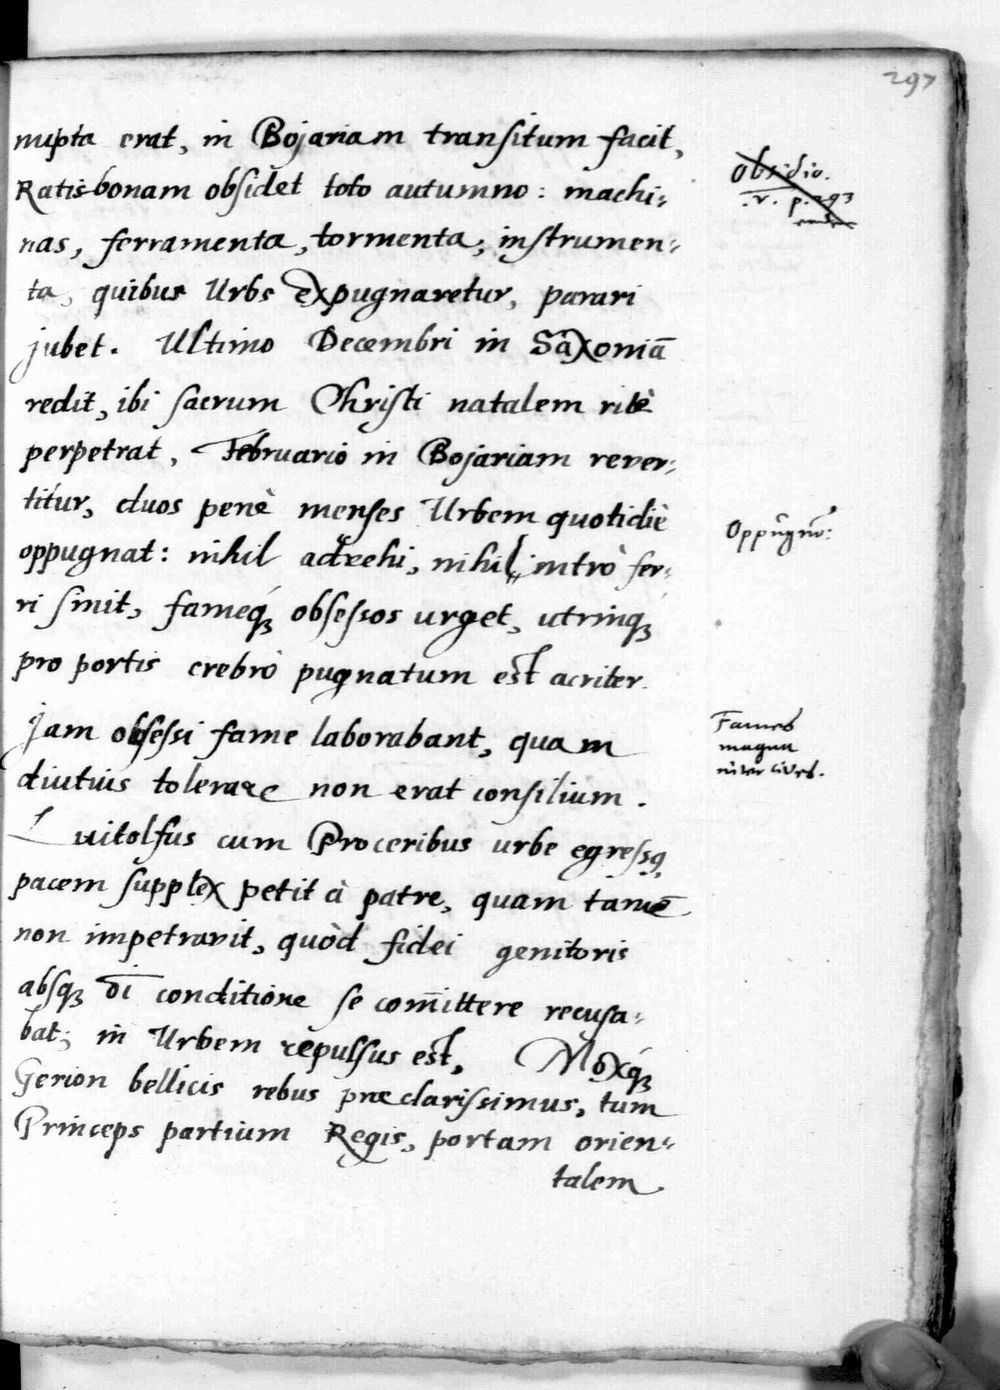 297
nupta erat, in Bojariam transitum facit,
Ratisbonam obsidet toto autumno: machi-
nas, ferramenta, tormenta, instrumen-
ta, quibus Urbs expugnaretur, parari
jubet. Ultimo Decembri in Saxoniā
redit, ibi sacrum Christi natalem ritè
perpetrat, Februario in Bojariam rever-
titur, duos penè menses Urbem quotidiè
oppugnat: nihil advehi, nihil intrò fer-
ri sinit, fameq́ꝫ obsessos urget, utrinqꝫ
pro portis crebrò pugnatum est acriter.
Jam obsessi fame laborabant, quam
diutius tolerare non erat consilium.
Luitolfus cum Proceribus urbe egressꝯ,
pacem supplex petit à patre, quam tamē
non impetravit, quòd fidei genitoris
absqꝫ oī conditione se com̄ittere recusa-
bat; in Urbem repulsus est, Moxq́ꝫ
Gerion bellicis rebus præclarissimus, tum
Princeps partium Regis, portam orien-
talem
Obsidio.
v. p. 293
Fames
magna
inter cives.